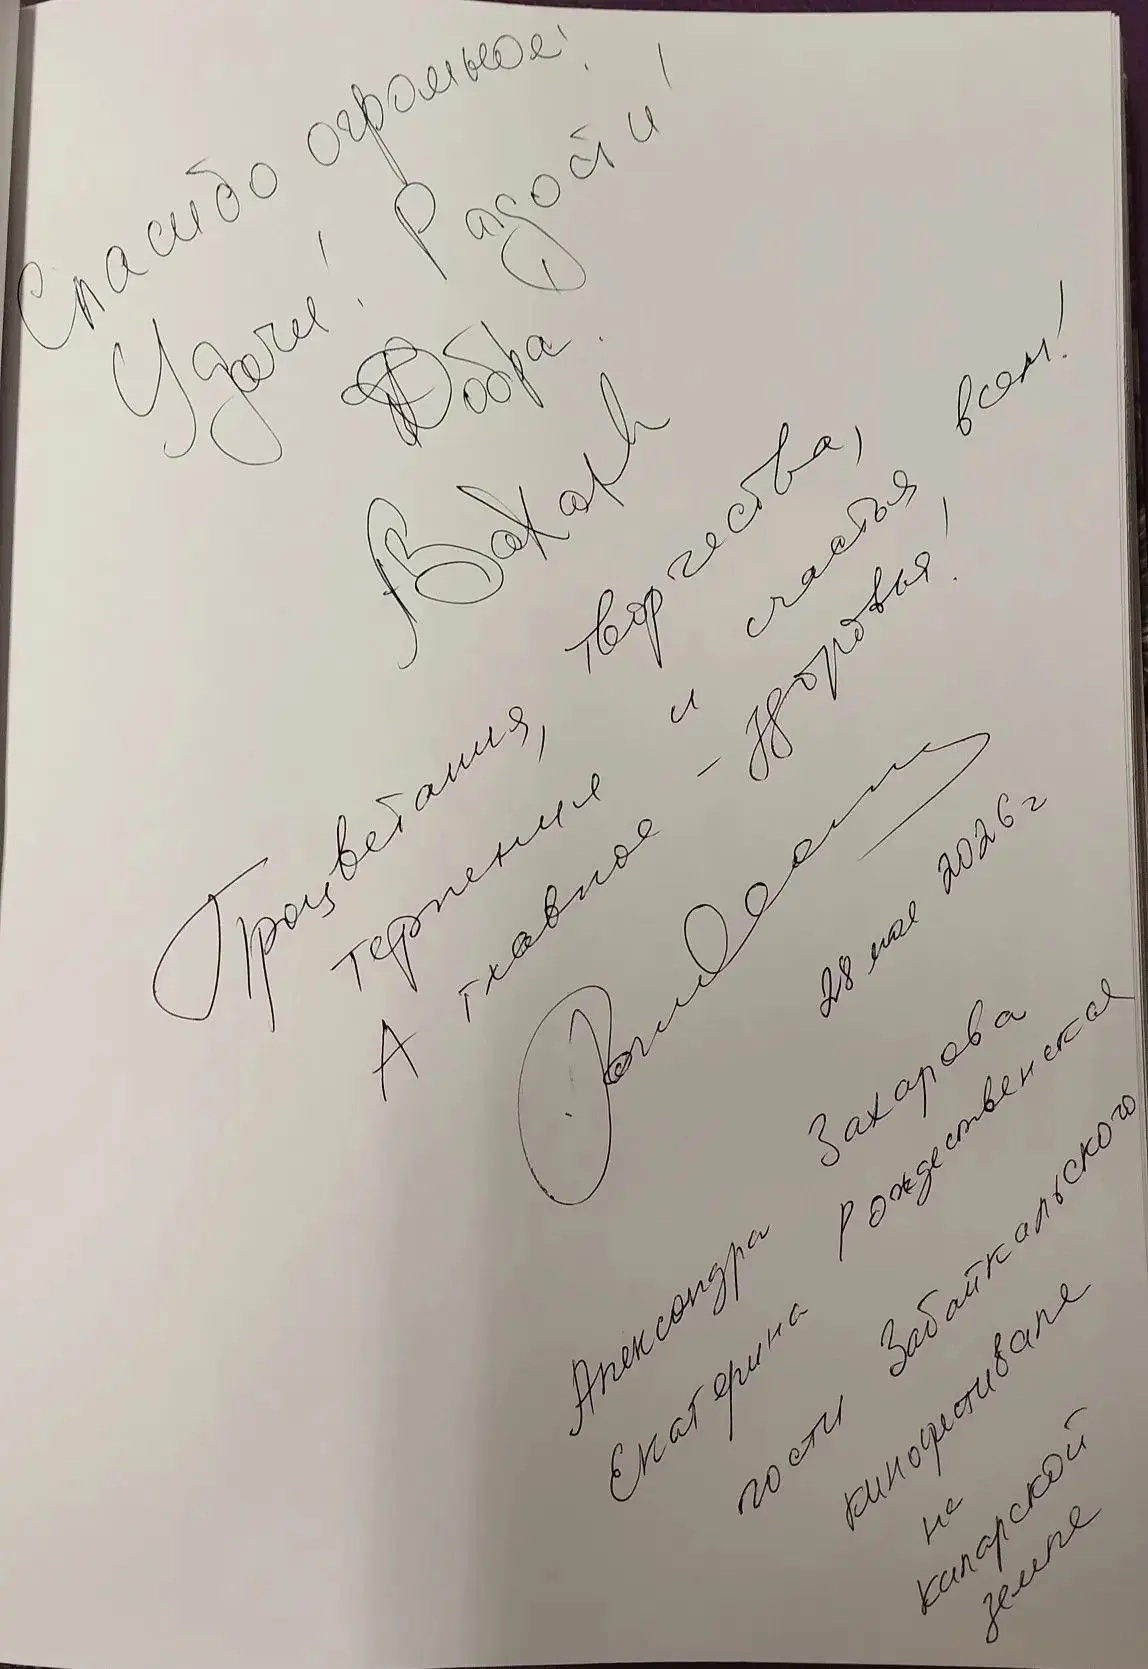 Спасибо огромное!
Удачи! Радости!
Добра.
Процветания, творчества,
терпения и счастья всем!
А главное - здоровья!
28 мая 2026 г
Александра Захарова
Екатерина Рождественская
гости Забайкальского
кинофестиваля
на
каларской
земле